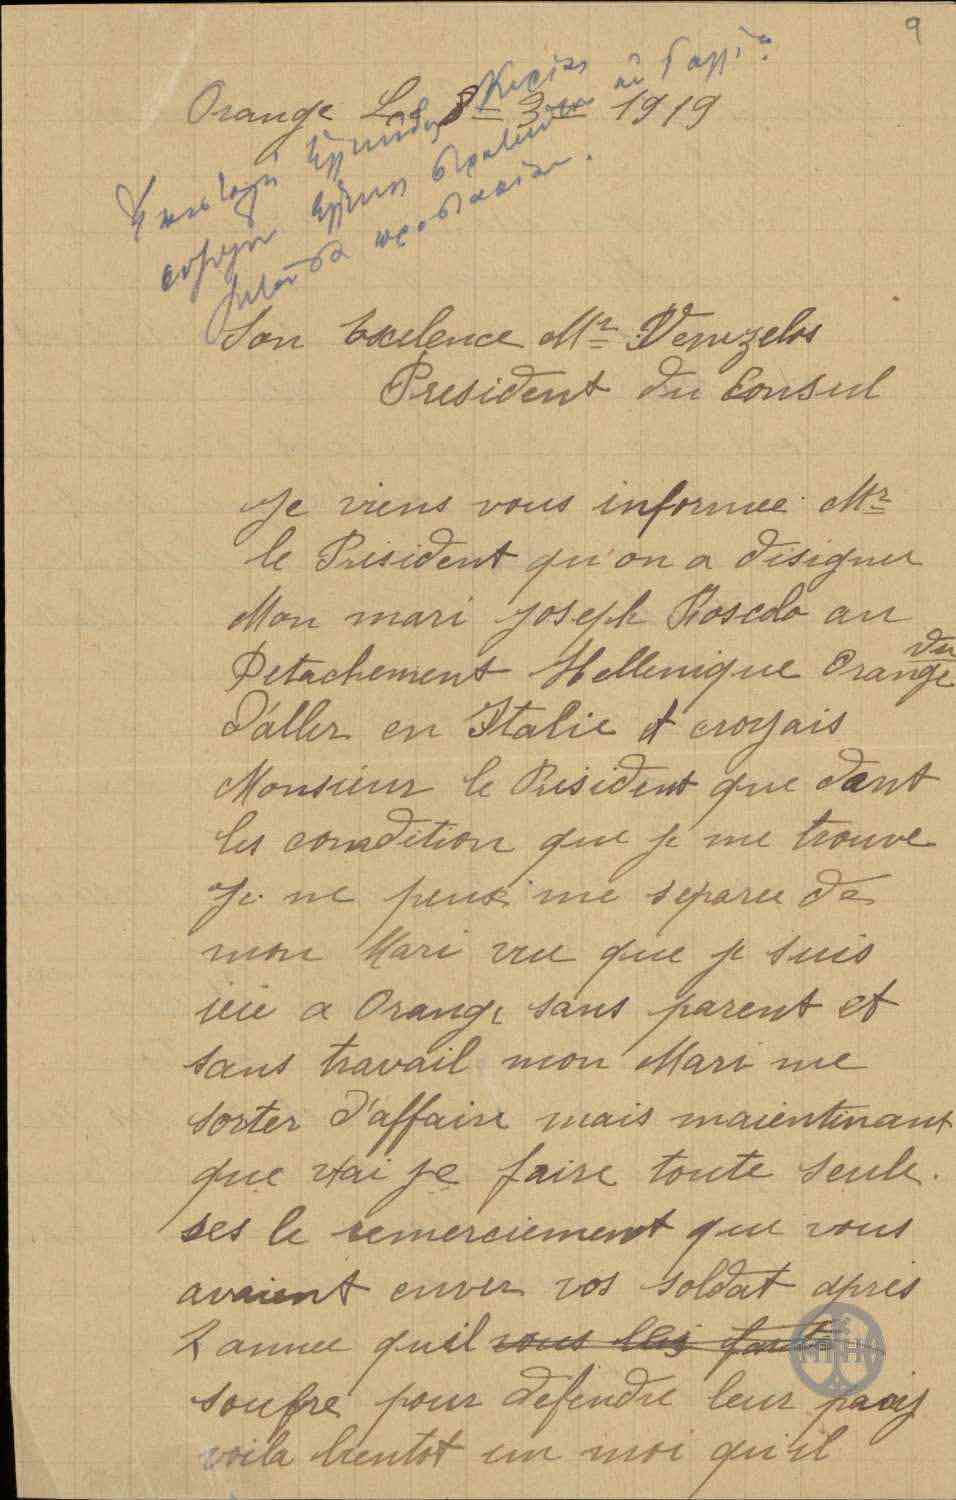 9
Orange Le 8 = 3 = 1919
Ἐπιστολὴ Ἑλληνίδος Κυρίας
συζύγου Ἕλληνος στρατιώτου ἐν Γαλλίᾳ
ζητοῦσα προστασίαν.
Son Excelence Mr Venizelos
President du Conseil
Je viens vous informee Mr
le Président qu'on a désigner
Mon mari Joseph Roscolo au
Detachement Hellenique du Orange
D'aller en Italie et croyais
Monsieur le Président que dant
les condition que je me trouve
Je ne peux me separee de
mon Mari vue que je suis
icie a Orange sans parent et
sans travail mon Mari me
sorter d'affaire mais maientinant
que vai je faire toute seule.
ses le remerciement que vous
avaient enver vos soldat après
L annee quil vous les font
soufre pour défendre leur paaiy
voila bientot un moi qu'il